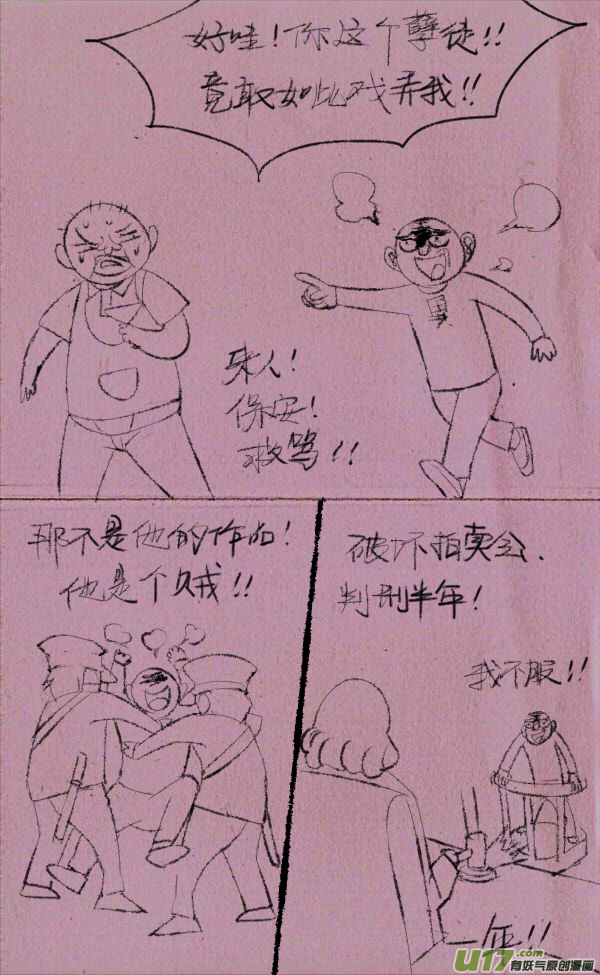 好哇!你这个孽徒!!
竟敢如此戏弄我!!
来人!
保安!
救驾!!
那不是他的作品!
他是个贼!!
破坏拍卖会.
判刑半年!
我不服!!
一年!!
U17.com
有妖气原创漫画